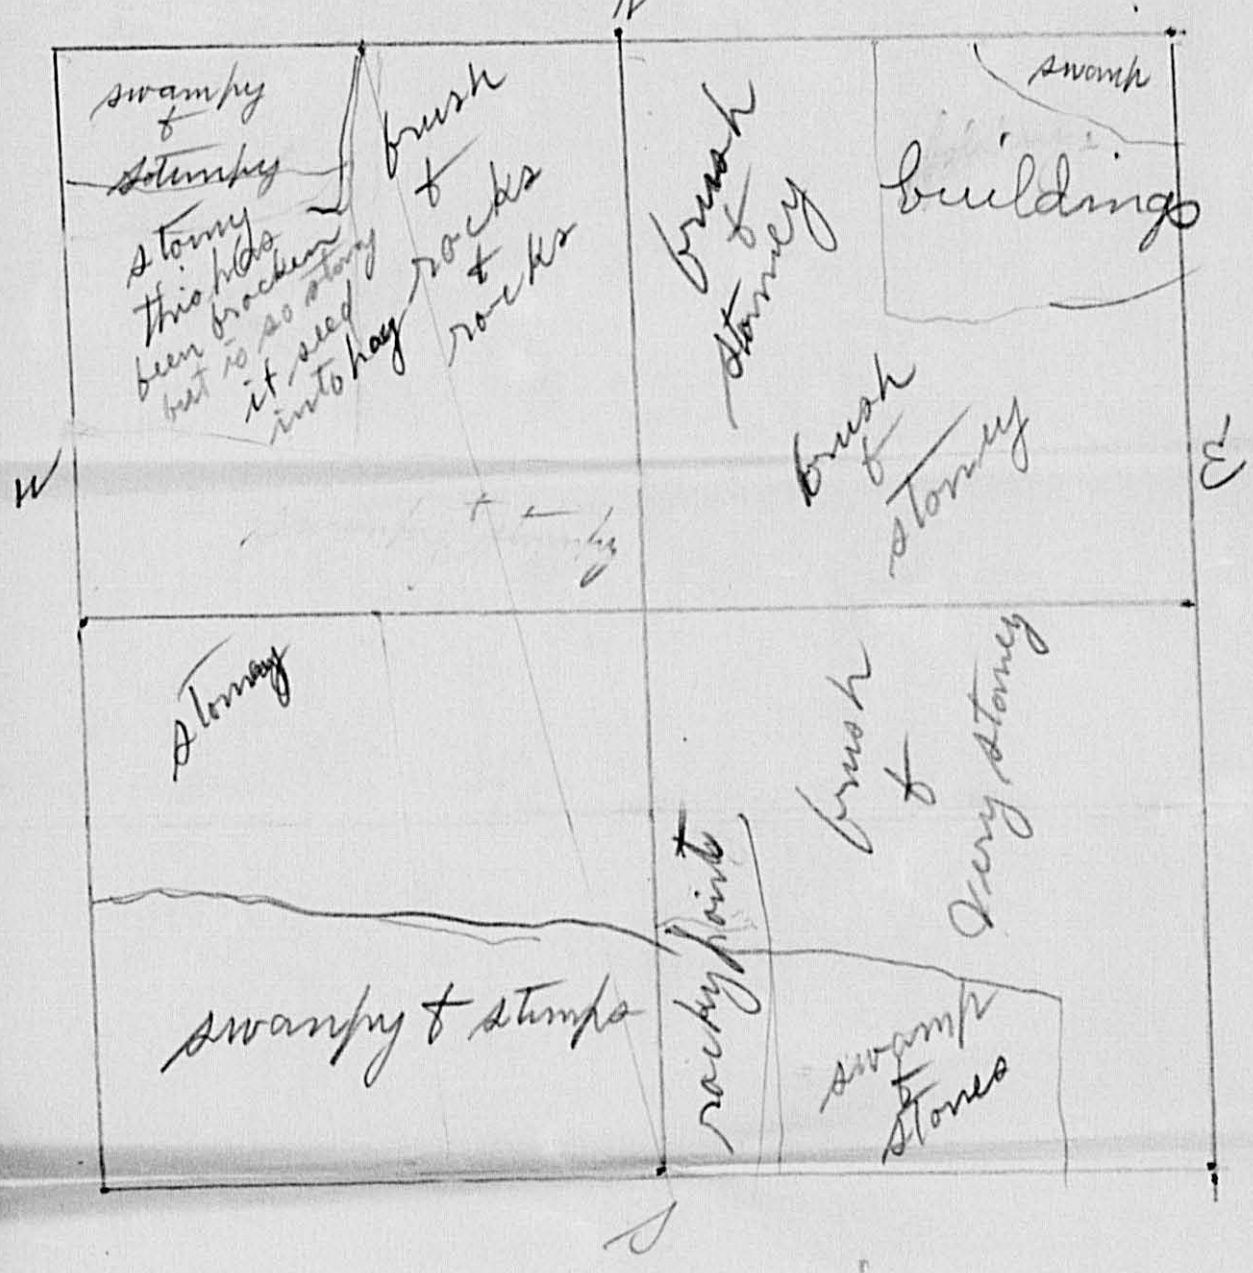 N
swampy
&
stumpy
stony
this has
been brocken
but is so stony
it seed
into hay
brush
&
rocks
&
rocks
brush
&
stoney
swamp
buildings
brush
&
stoney
W
E
stoney
brush
&
very stoney
rocky points
swampy & stumps
swamp
&
stones
S